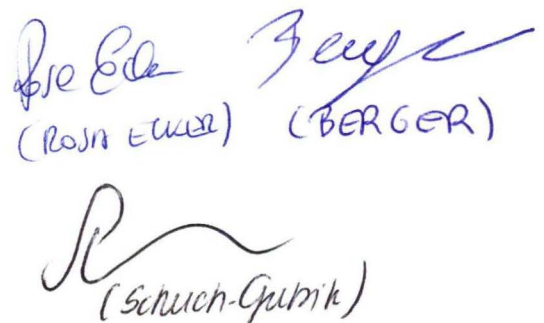 Rosa Ecker Berger
(ROSA ECKER) (BERGER)
(Schuch-Gubik)